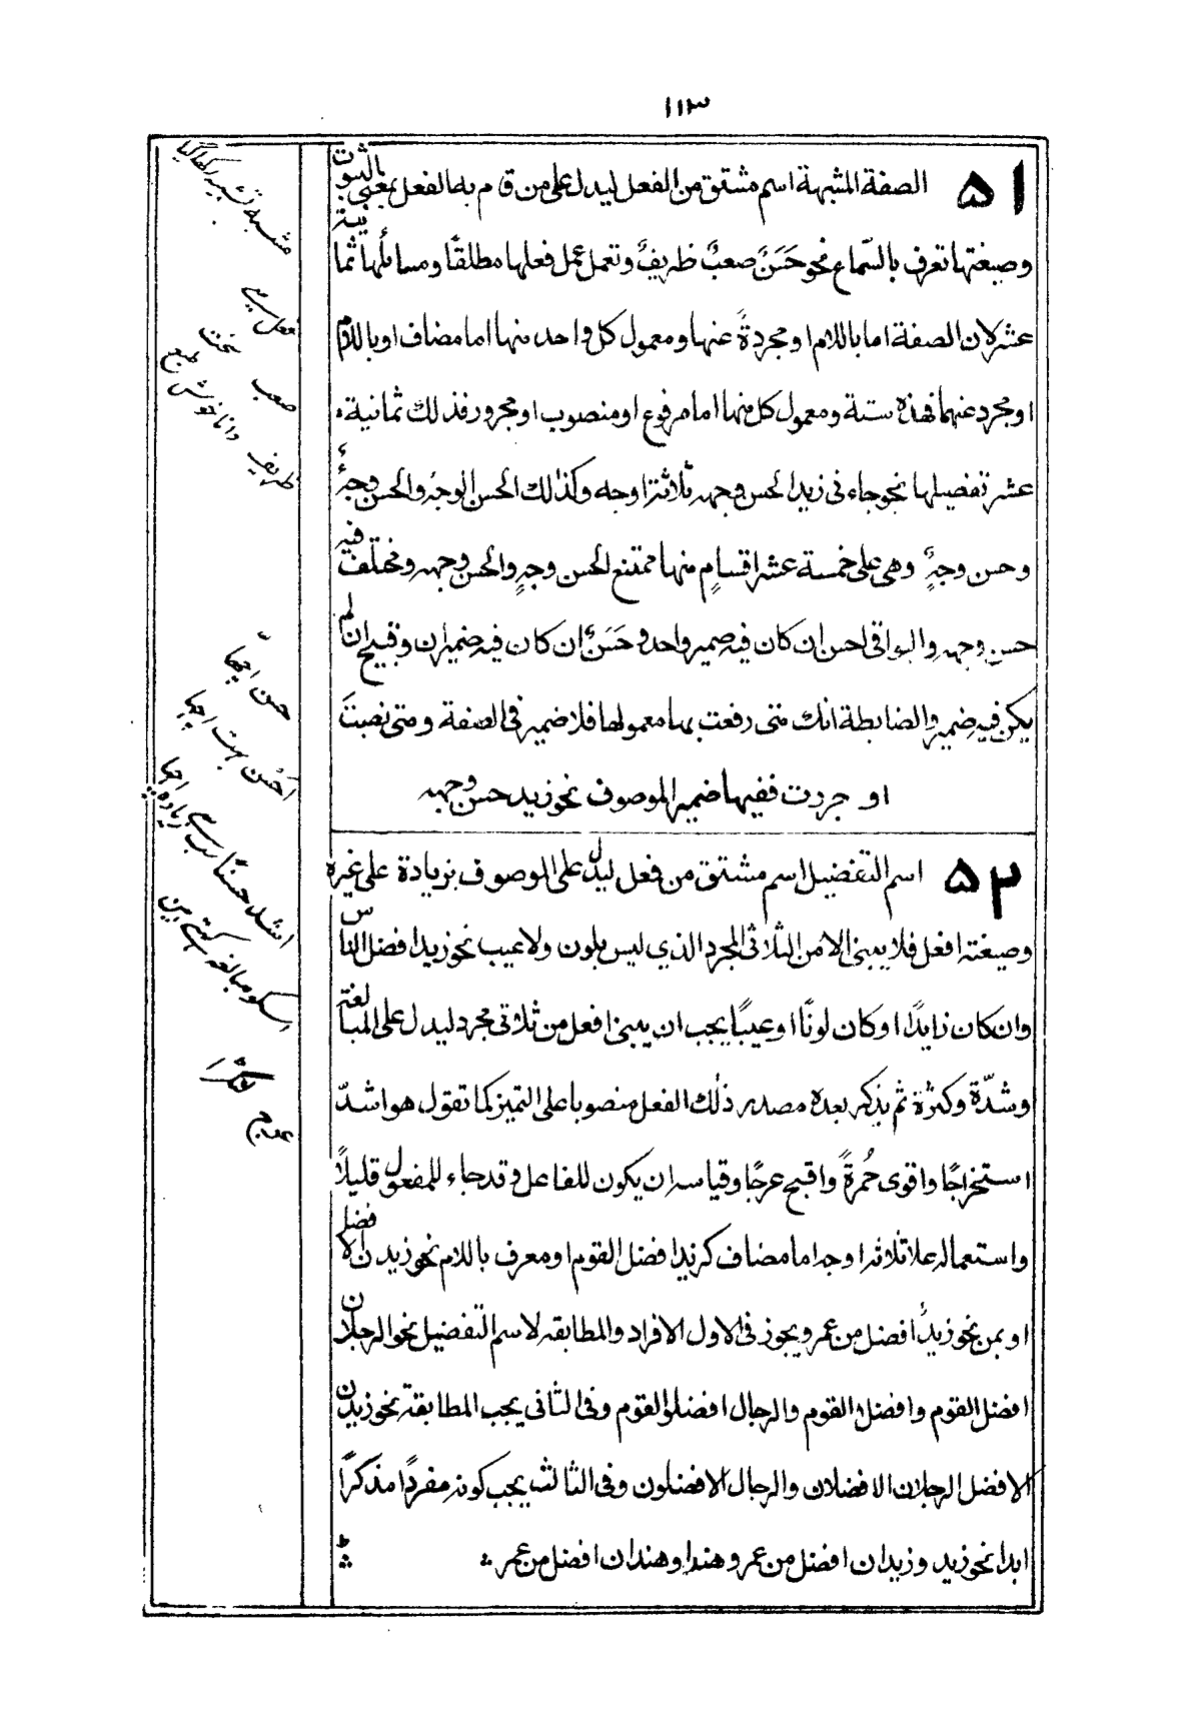 ١١٣
٥١ الصفة المشبهة اسم مشتق من الفعل ليدل على من قام به الفعل بمعنى بالثبوت
وصيغتها تعرف بالسّماع نحو حَسَنٌ صعبٌ ظريفٌ وتعمل عمل فعلها مطلقًا ومسائلها ثمانية
عشر لان الصفة اما باللام او مجردةً عنها ومعمول كل واحد منها اما مضاف او باللام
او مجرد عنهما فهذه ستة ومعمول كل منها اما مرفوع او منصوب او مجرور فذلك ثمانية
عشر تفصيلها نحو جاءنى زيد الحسن وجهه ثلاثة اوجه وكذٰلك الحسن الوجهُ والحسن وجهٌ
وحسن وجهٌ وهى على خمسة عشر اقسامٍ منها ممتنع الحسن وجهٍ والحسن وجهه ومختلف فيه
حسن وجهه والبواقى احسن ان كان فيه ضمير واحد وحَسَنٌ ان كان فيه ضميران وقبيح ان لم
يكن فيه ضمير والضابطة انك متى رفعت بها معمولها فلا ضمير فى الصفة ومتى نصبتَ
او جررت ففيها ضمير الموصوف نحو زيد حسن وجهه
٥٢ اسم التفضيل اسم مشتق من فعل ليدل على الموصوف بزيادة على غيره
وصيغته افعل فلا يبنى الا من الثلاثى المجرد الذي ليس بلون ولا عيب نحو زيد افضل الناس
وان كان زايدًا او كان لونًا او عيبًا يجب ان يبنى افعل من ثلاثى مجرد ليدل على المبالغة
وشدّة وكثرة ثم يذكر بعده مصدر ذٰلك الفعل منصوبا على التميز كما تقول هو اشدّ
استخراجًا واقوى حُمرةً واقبح عرجًا وقياسه ان يكون للفاعل وقد جاء للمفعول قليلًا
واستعماله علا ثلاثه اوجه اما مضاف كزيد افضل القوم او معرف باللام نحو زيدن الافضل
او بمن نحو زيدٌ افضل من عمر ويجوز فى الاول الافراد والمطابقه لاسم التفضيل نحو الرجلان
افضل القوم وافضلا القوم والرجال افضلو القوم وفى الثانى يجب المطابقة نحو زيدن
الافضل الرجلان الافضلان والرجال الافضلون وفى الثالث يجب كونه مفردًا مذكرًا
ابدا نحو زيد وزيدان افضل من عمر وهند وهندان افضل من عمر
صعب سخت
ظريف دانا خوش طبع
حسن اچها
احسن بہت اچها
عرج لنگڑا